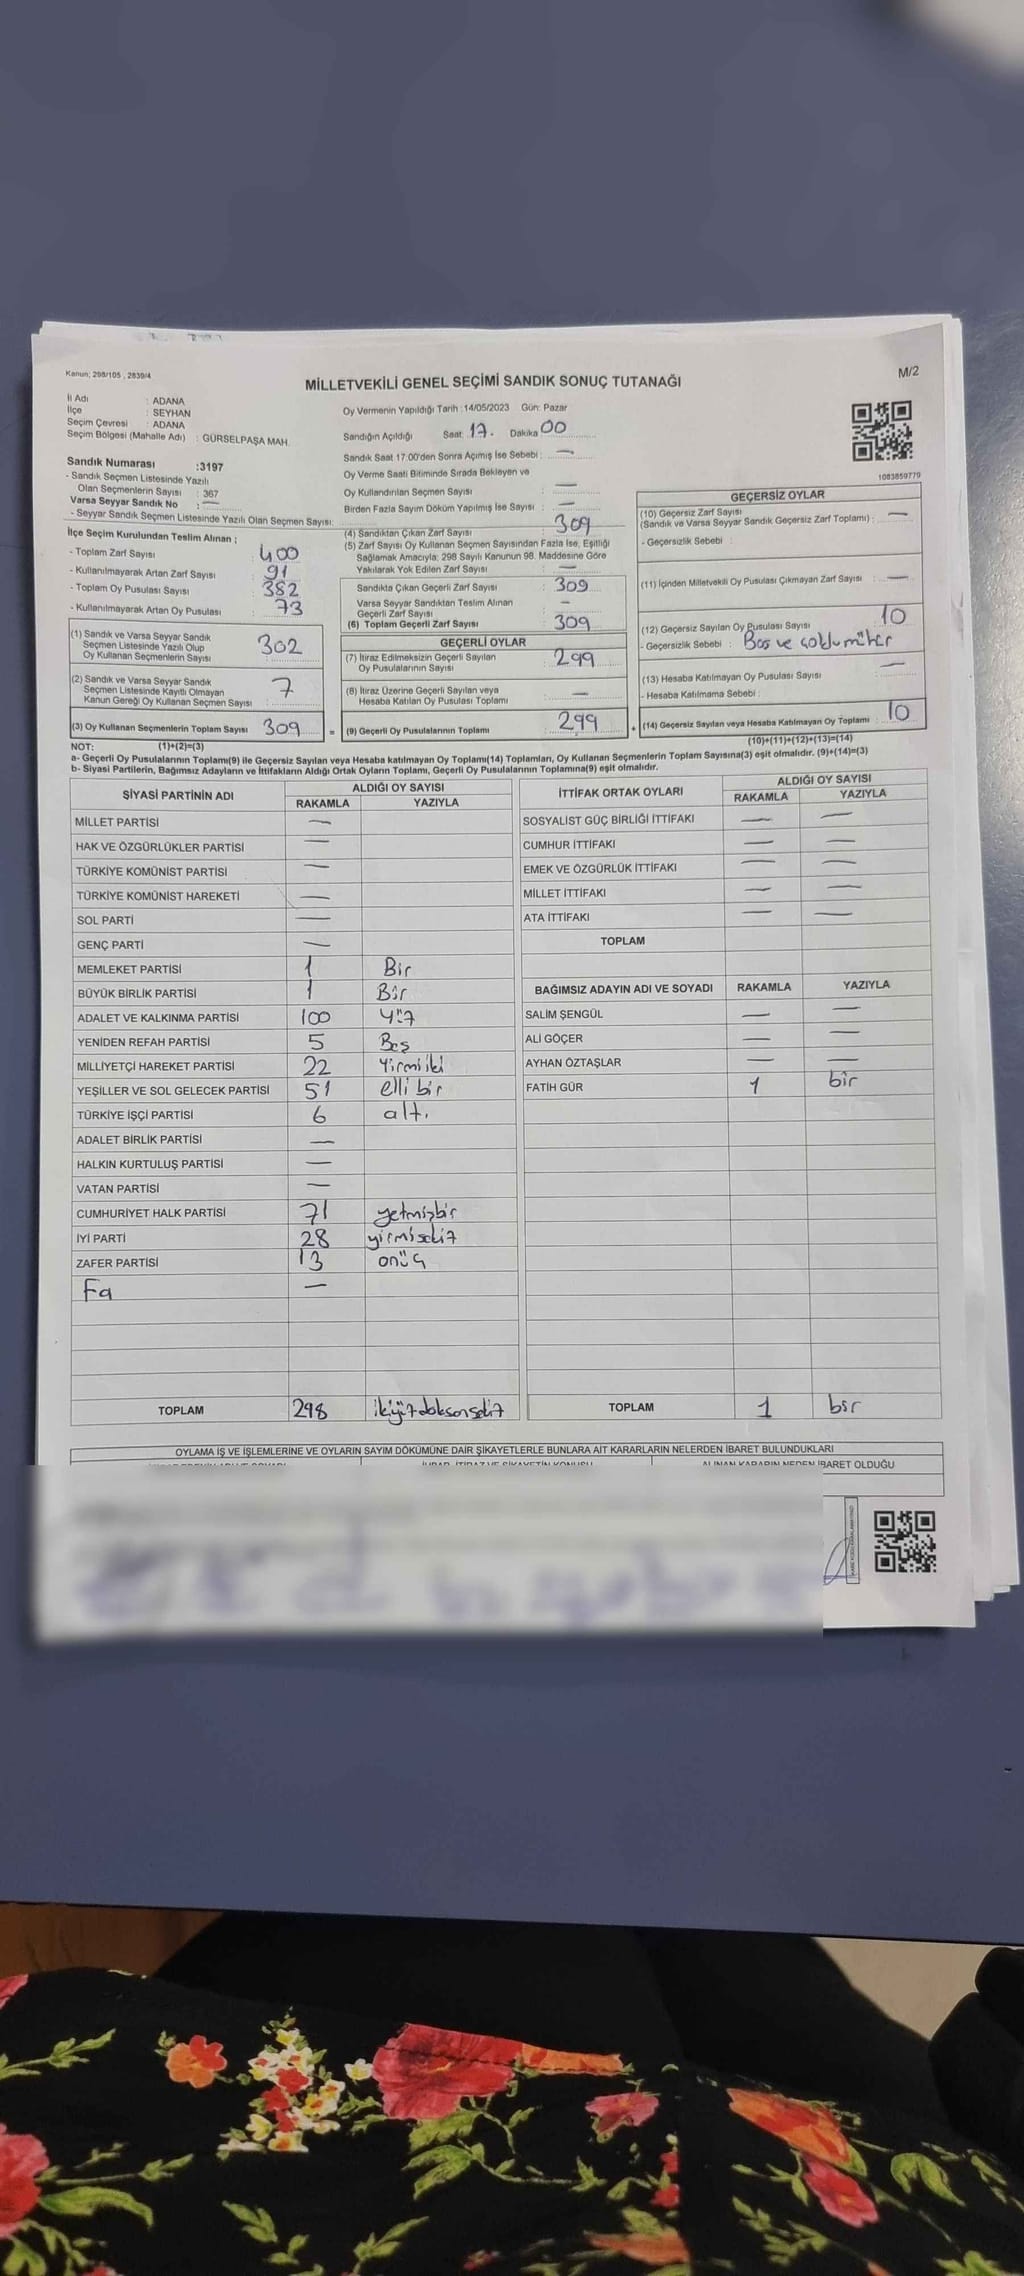 Kanun; 298/105 , 2839/4
M/2
MİLLETVEKİLİ GENEL SEÇİMİ SANDIK SONUÇ TUTANAĞI
İl Adı : ADANA
İlçe : SEYHAN
Seçim Çevresi : ADANA
Seçim Bölgesi (Mahalle Adı) : GÜRSELPAŞA MAH.
Sandık Numarası :3197
- Sandık Seçmen Listesinde Yazılı
Olan Seçmenlerin Sayısı : 367
Varsa Seyyar Sandık No : —
- Seyyar Sandık Seçmen Listesinde Yazılı Olan Seçmen Sayısı:
Oy Vermenin Yapıldığı Tarih :14/05/2023 Gün: Pazar
Sandığın Açıldığı Saat 17. Dakika 00
Sandık Saat 17:00'den Sonra Açımış İse Sebebi : —
Oy Verme Saati Bitiminde Sırada Bekleyen ve
Oy Kullandırılan Seçmen Sayısı : —
Birden Fazla Sayım Döküm Yapılmış İse Sayısı : —
1083859779
İlçe Seçim Kurulundan Teslim Alınan ;
- Toplam Zarf Sayısı : 400
- Kullanılmayarak Artan Zarf Sayısı : 91
- Toplam Oy Pusulası Sayısı : 382
- Kullanılmayarak Artan Oy Pusulası : 73
(1) Sandık ve Varsa Seyyar Sandık
Seçmen Listesinde Yazılı Olup
Oy Kullanan Seçmenlerin Sayısı : 302
(2) Sandık ve Varsa Seyyar Sandık
Seçmen Listesinde Kayıtlı Olmayan
Kanun Gereği Oy Kullanan Seçmen Sayısı : 7
(3) Oy Kullanan Seçmenlerin Toplam Sayısı : 309
=
(4) Sandıktan Çıkan Zarf Sayısı : 309
(5) Zarf Sayısı Oy Kullanan Seçmen Sayısından Fazla İse, Eşitliği
Sağlamak Amacıyla; 298 Sayılı Kanunun 98. Maddesine Göre
Yakılarak Yok Edilen Zarf Sayısı : —
Sandıkta Çıkan Geçerli Zarf Sayısı : 309
Varsa Seyyar Sandıktan Teslim Alınan
Geçerli Zarf Sayısı : —
(6) Toplam Geçerli Zarf Sayısı : 309
GEÇERLİ OYLAR
(7) İtiraz Edilmeksizin Geçerli Sayılan
Oy Pusulalarının Sayısı : 299
(8) İtiraz Üzerine Geçerli Sayılan veya
Hesaba Katılan Oy Pusulası Toplamı : —
(9) Geçerli Oy Pusulalarının Toplamı : 299
+
GEÇERSİZ OYLAR
(10) Geçersiz Zarf Sayısı
(Sandık ve Varsa Seyyar Sandık Geçersiz Zarf Toplamı) : —
- Geçersizlik Sebebi :
(11) İçinden Milletvekili Oy Pusulası Çıkmayan Zarf Sayısı : —
(12) Geçersiz Sayılan Oy Pusulası Sayısı : 10
- Geçersizlik Sebebi : Boş ve çoklu mühür
(13) Hesaba Katılmayan Oy Pusulası Sayısı : —
- Hesaba Katılmama Sebebi :
(14) Geçersiz Sayılan veya Hesaba Katılmayan Oy Toplamı : 10
NOT: (1)+(2)=(3)
(10)+(11)+(12)+(13)=(14)
a- Geçerli Oy Pusulalarının Toplamı(9) ile Geçersiz Sayılan veya Hesaba katılmayan Oy Toplamı(14) Toplamları, Oy Kullanan Seçmenlerin Toplam Sayısına(3) eşit olmalıdır. (9)+(14)=(3)
b- Siyasi Partilerin, Bağımsız Adayların ve İttifakların Aldığı Ortak Oyların Toplamı, Geçerli Oy Pusulalarının Toplamına(9) eşit olmalıdır.
SİYASİ PARTİNİN ADI
ALDIĞI OY SAYISI
RAKAMLA YAZIYLA
MİLLET PARTİSİ —
HAK VE ÖZGÜRLÜKLER PARTİSİ —
TÜRKİYE KOMÜNİST PARTİSİ —
TÜRKİYE KOMÜNİST HAREKETİ —
SOL PARTİ —
GENÇ PARTİ —
MEMLEKET PARTİSİ 1 Bir
BÜYÜK BİRLİK PARTİSİ 1 Bir
ADALET VE KALKINMA PARTİSİ 100 Yüz
YENİDEN REFAH PARTİSİ 5 Beş
MİLLİYETÇİ HAREKET PARTİSİ 22 Yirmi iki
YEŞİLLER VE SOL GELECEK PARTİSİ 51 elli bir
TÜRKİYE İŞÇİ PARTİSİ 6 altı
ADALET BİRLİK PARTİSİ —
HALKIN KURTULUŞ PARTİSİ —
VATAN PARTİSİ —
CUMHURİYET HALK PARTİSİ 71 yetmişbir
İYİ PARTİ 28 yirmisekiz
ZAFER PARTİSİ 13 onüç
Fa —
TOPLAM 298 ikiyüzdoksansekiz
İTTİFAK ORTAK OYLARI
ALDIĞI OY SAYISI
RAKAMLA YAZIYLA
SOSYALİST GÜÇ BİRLİĞİ İTTİFAKI — —
CUMHUR İTTİFAKI — —
EMEK VE ÖZGÜRLÜK İTTİFAKI — —
MİLLET İTTİFAKI — —
ATA İTTİFAKI — —
TOPLAM
BAĞIMSIZ ADAYIN ADI VE SOYADI RAKAMLA YAZIYLA
SALİM ŞENGÜL — —
ALİ GÖÇER — —
AYHAN ÖZTAŞLAR — —
FATİH GÜR 1 bir
TOPLAM 1 bir
OYLAMA İŞ VE İŞLEMLERİNE VE OYLARIN SAYIM DÖKÜMÜNE DAİR ŞİKAYETLERLE BUNLARA AİT KARARLARIN NELERDEN İBARET BULUNDUKLARI
ALINAN KARARIN NEDEN İBARET OLDUĞU